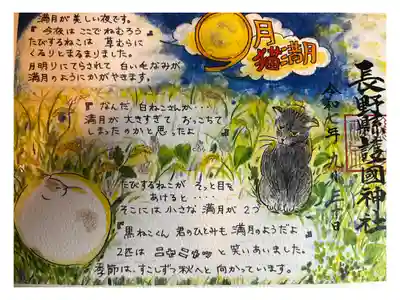 満月が美しい夜です。
『今夜は ここで ねむろう』
たびするねこは 草むらに
くるりとまるまりました。
月明りにてらされて 白い毛なみが
満月のようにかがやきます。
9月
猫満月
『なんだ 白ねこさんが‥‥
満月が 大きすぎて おっこちて
しまったのかと思ったよ』
たびするねこが そっと目を
あけると‥‥
そこには 小さな 満月が 2つ
『黒ねこくん 君のひとみも 満月のようだよ』
2匹は と笑いあいました。
季節は、すこしずつ秋へと 向かっています。
長野縣護國神社
令和七年 九月 日